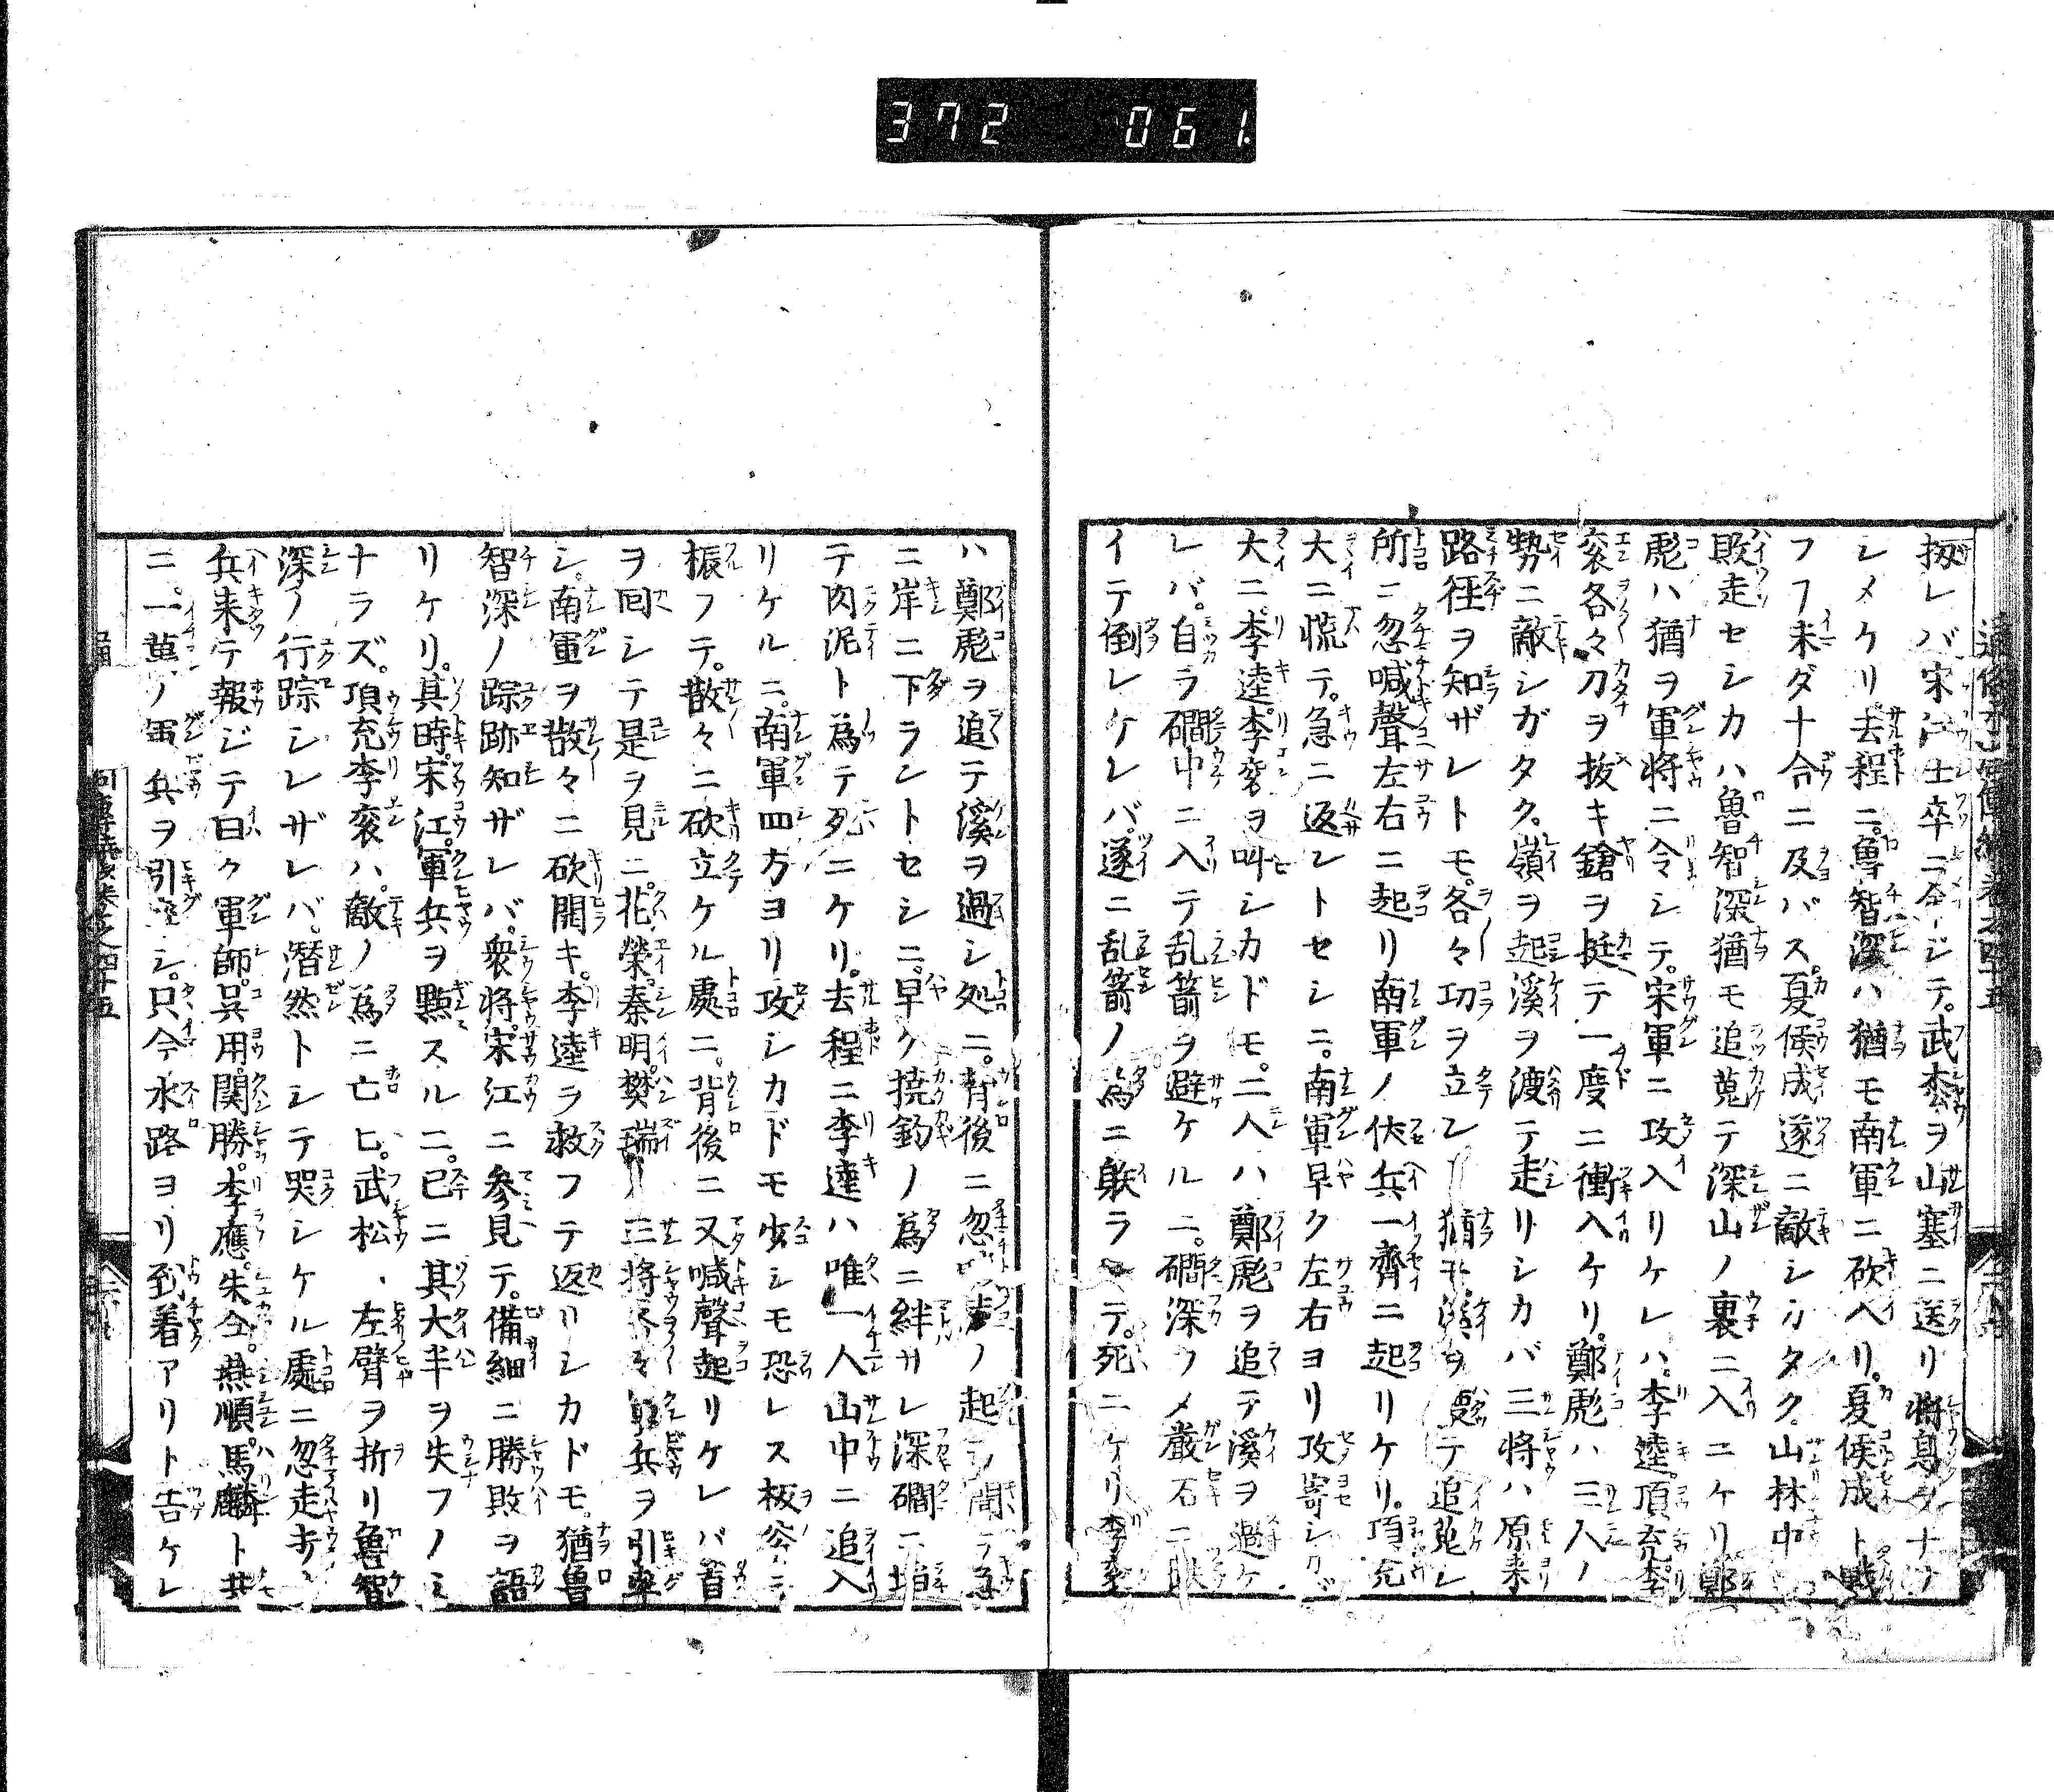 372 061
扱レバ宋江士卒ニ命ジテ武松ヲ山塞ニ送リ将息サナサ
シメケリ去程ニ魯智深ハ猶モ南軍ニ砍入リ夏侯成ト戦
フフ未ダ十合ニ及バス夏候成遂ニ敵シカタク山林中
敗走セシカハ魯智深猶モ追蒐テ深山ノ裏ニ入ニケリ鄭
彪ハ猶ヲ軍將ニ令シテ宋軍ニ攻入リケレハ李逵項充李
袞各々刀ヲ抜キ鎗ヲ挺テ一度ニ衝入ケリ鄭彪ハ三人ノ
勢ニ敵シガタク嶺ヲ起溪ヲ渡テ走リシカバ三将ハ原来
路徑ヲ知ザレトモ各々功ヲ立 猶モ溪ヲ渡テ追蒐レ
所ニ忽喊聲左右ニ起リ南軍ノ伏兵一齊ニ起リケリ項充
大ニ慌テ急ニ返レトセシニ南軍早ク左右ヨリ攻寄シカバ
大ニ李逵李袞ヲ叫シカドモ二人ハ鄭彪ヲ追テ溪ヲ過ケ
レバ自ラ磵中ニ入テ乱箭ヲ避ケルニ磵深フメ嚴石ニ
イテ倒レケレバ遂ニ乱箭ノ為ニ射ラレテ死ニケリ李袞
ハ鄭彪ヲ追テ溪ヲ過シ処ニ背後ニ忽 ノ起テ 急
ニ岸ニ下ラントセシニ早ク撓鈎ノ為ニ絆サレ深磵ニ
テ肉泥ト為テ死ニケリ去程ニ李逵ハ唯一人山中ニ追入
リケルニ南軍四方ヨリ攻シカドモ少シモ恐レス板斧ヲ
振フテ散々ニ砍立ケル處ニ背後ニ又喊聲起リケレバ首
ヲ回シテ是ヲ見ニ花榮秦明樊瑞 三将各々軍兵ヲ引率
シ南軍ヲ散々ニ砍開キ李逵ヲ救フテ返リシカドモ猶魯
智深ノ踪跡知ザレバ衆将宋江ニ參見テ備細ニ勝敗ヲ語
リケリ其時宋江軍兵ヲ點スルニ已ニ其大半ヲ失フノミ
ナラズ項充李袞ハ敵ノ為ニ亡ヒ武松 左臂ヲ折リ魯智
深ノ行踪シレザレバ潜然トシテ哭シケル處ニ忽走歩
兵来テ報ジテ曰ク軍師呉用関勝李應朱仝燕順馬麟ト共
ニ一萬ノ軍兵ヲ引率シ只今水路ヨリ到着アリト告ケレ